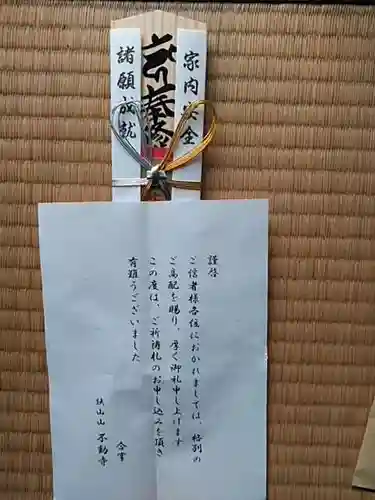 家内安全
奉修
諸願成就
謹啓
ご信者様各位におかれましては、格別の
ご高配を賜り、厚く御礼申し上げます
この度は、ご祈祷札のお申し込みを頂き
有難うございました
合掌
狭山山 不動寺